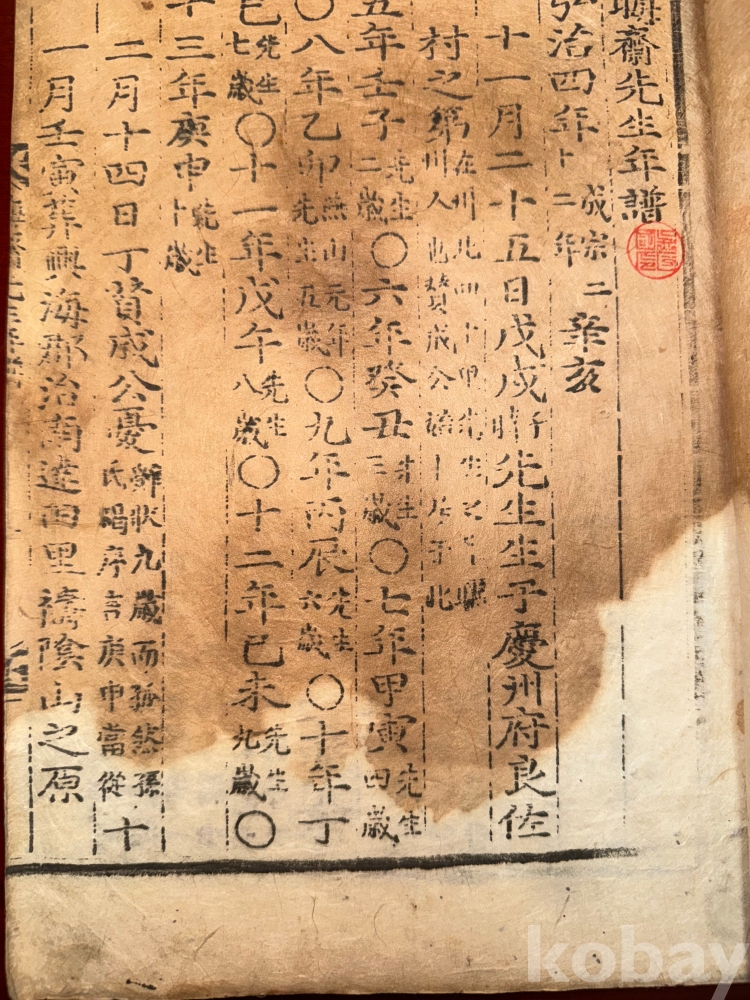 晦齋先生年譜
弘治四年成宗二十二年辛亥
十一月二十五日戊戌子時先生生于慶州府良佐
村之第在州北四十里先生之驪州人也贊成公始卜居于此
五年壬子先生二歲〇六年癸丑先生三歲〇七年甲寅先生四歲
〇八年乙卯燕山元年先生五歲〇九年丙辰先生六歲〇十年丁
巳先生七歲〇十一年戊午先生八歲〇十二年己未先生九歲〇
十三年庚申先生十歲
二月十四日丁贊成公憂辭狀九歲而孤然孫氏暘序言庚申當從十
一月壬寅葬興海郡治南達田里禱陰山之原
kobay